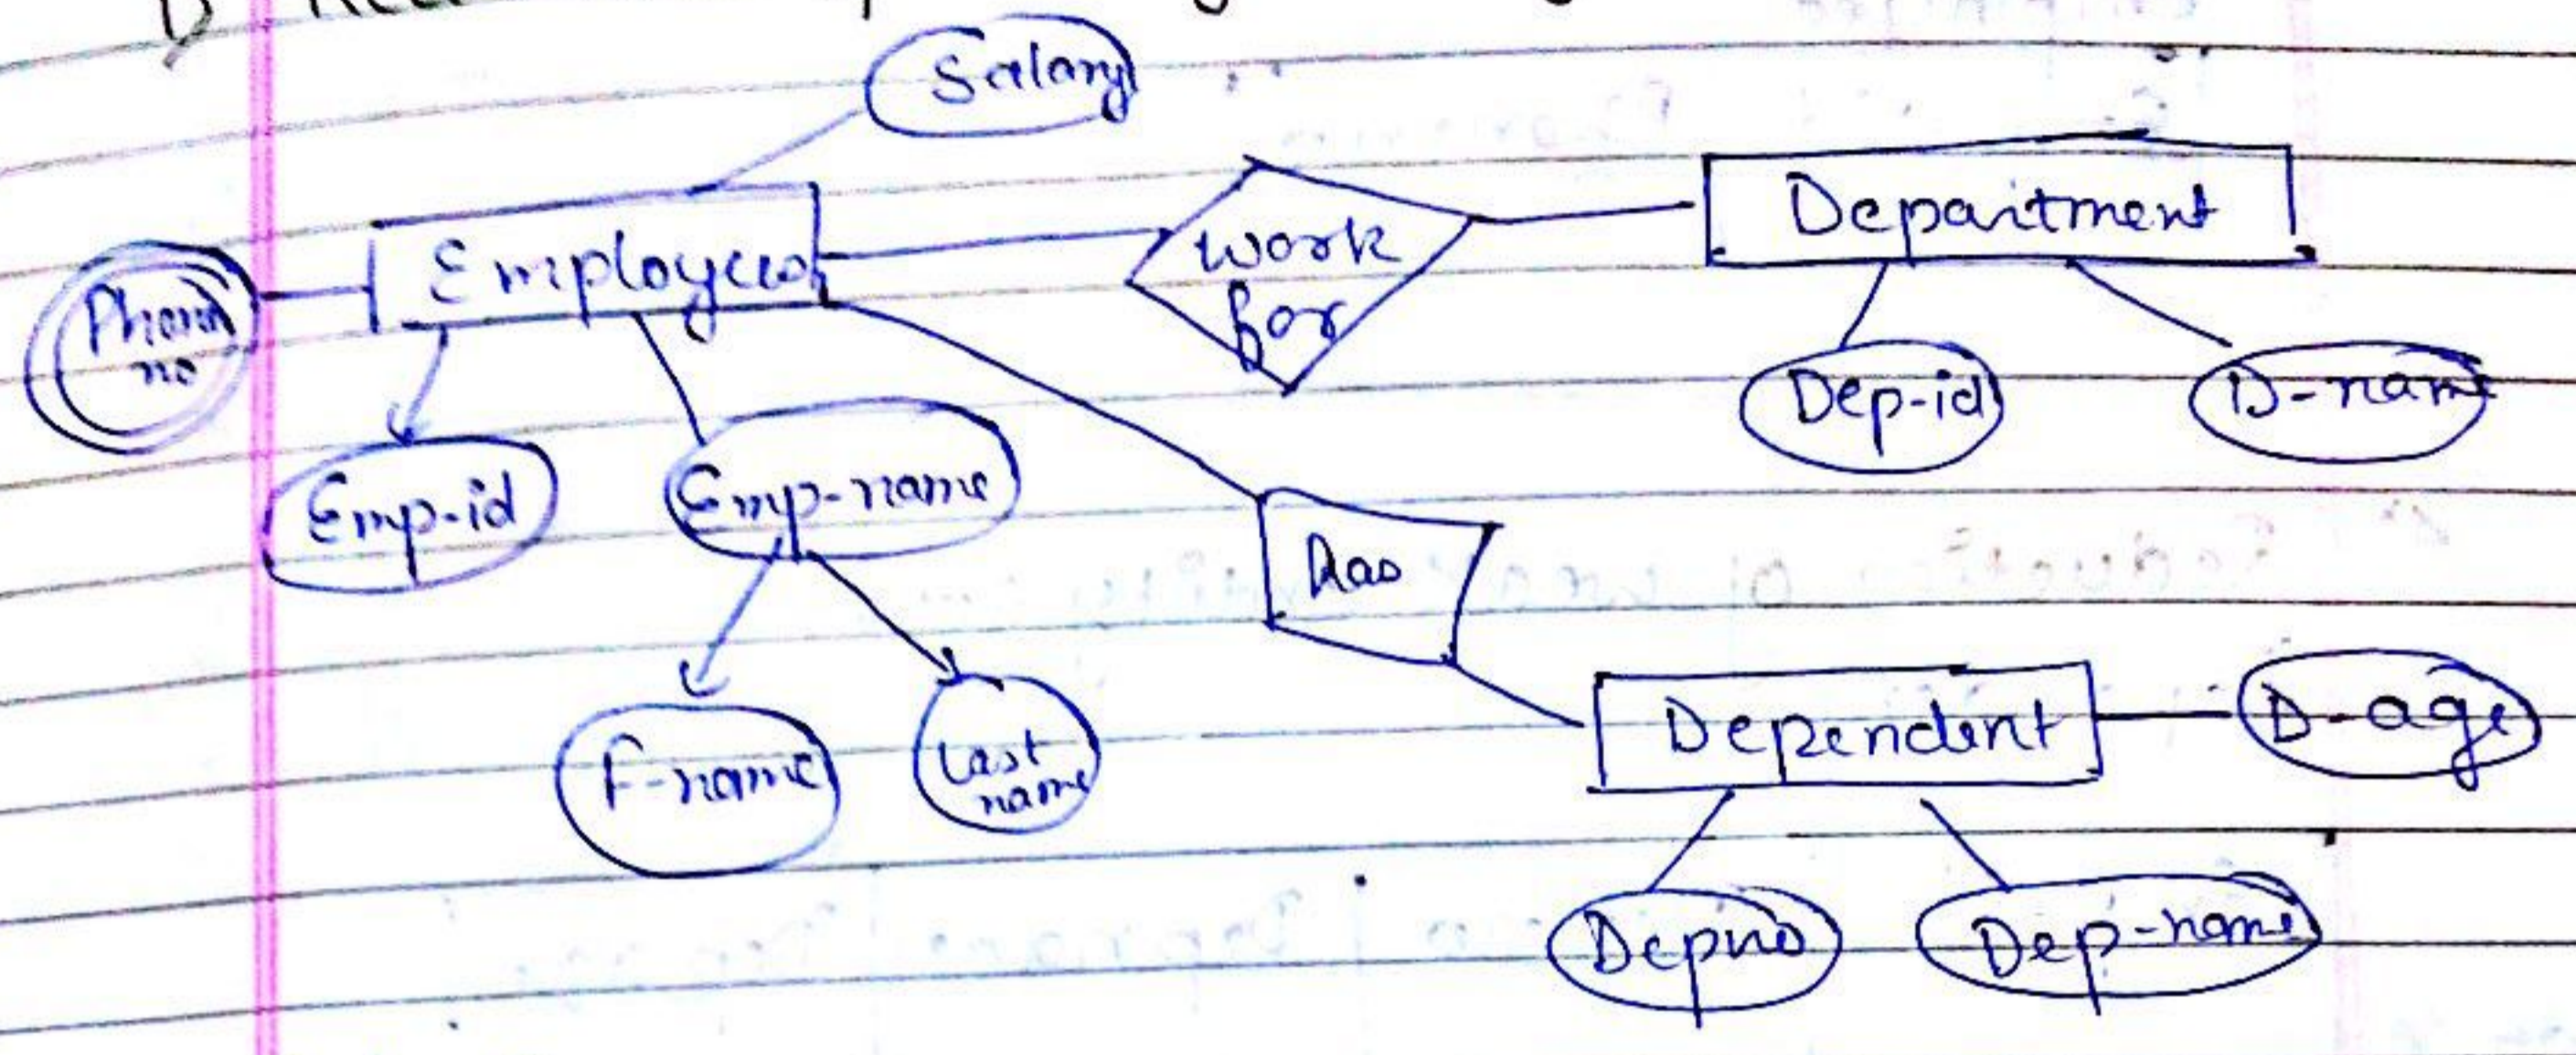 Salary
Employees
work
for
Department
Phone
no
Dep-id
D-name
Emp-id
Emp-name
has
F-name
Last
name
Dependent
D-age
Depno
Dep-name